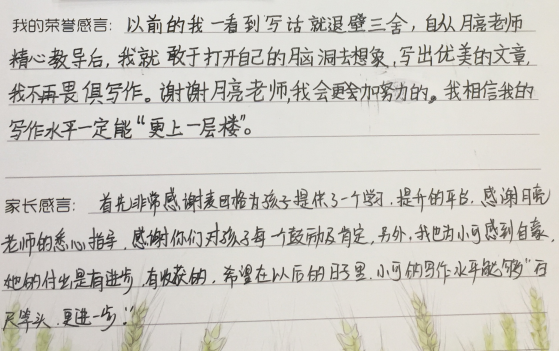 我的荣誉感言：以前的我一看到写话就退壁三舍，自从月亮老师
精心教导后，我就敢于打开自己的脑洞去想象，写出优美的文章，
我不再畏俱写作。谢谢月亮老师，我会更加努力的。我相信我的
写作水平一定能“更上一层楼”。
家长感言：首先非常感谢麦田格为孩子提供了一个学习、提升的平台，感谢月亮
老师的悉心指导，感谢你们对孩子每一个鼓励及肯定，另外，我也为小可感到自豪，
她的付出是有进步，有收获的，希望在以后的日子里，小可的写作水平能够“百
尺竿头，更进一步”！